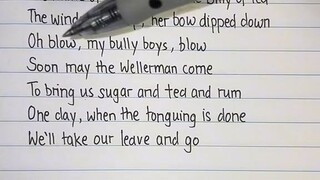 The wind up, her bow dipped down
Oh blow, my bully boys, blow
Soon may the Wellerman come
To bring us sugar and tea and rum
One day, when the tonguing is done
We'll take our leave and go